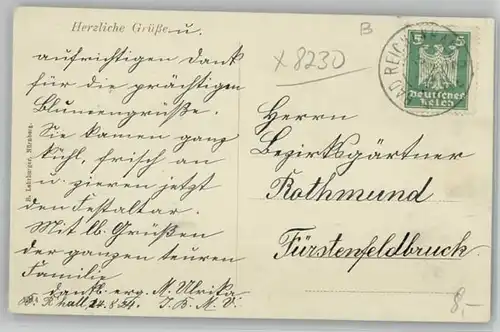 Herzliche Grüße u.
aufrichtigen Dank
für die prächtigen
Blumengrüße.
Sie kamen ganz
kühl, frisch an
u. zieren jetzt
den Festaltar.
Mit lb. Grüßen
der ganzen teuren
Familie
dankb. erg. M. Ulrika
24.8.
I. B. M. V.
B. Lehrburger, Nürnberg.
B
x 8230
BAD REICH
5 5
Deutsches
Reich
Herrn
Bezirksgärtner
Rothmund
Fürstenfeldbruck.
8,-